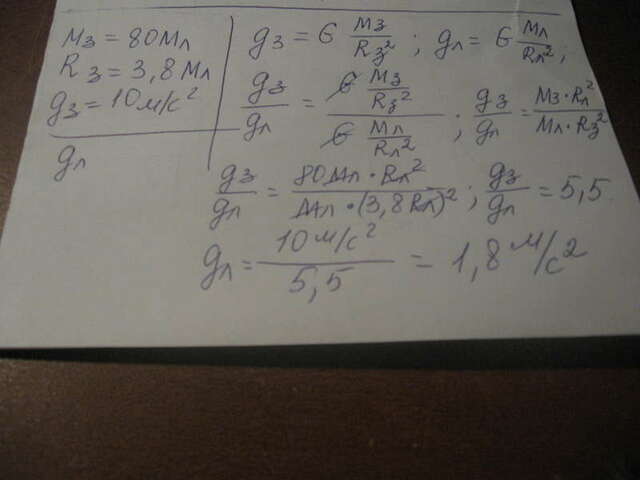 Mз = 80Mл
Rз = 3,8Mл
gз = 10м/с²
gл
gз = G Mз/Rз² ; gл = G Mл/Rл² ;
gз/gл = (G Mз/Rз²)/(G Mл/Rл²) ; gз/gл = Mз·Rл²/Mл·Rз²
gз/gл = 80Mл·Rл²/Mл·(3,8Rл)² ; gз/gл = 5,5
gл = 10м/с²/5,5 = 1,8м/с²